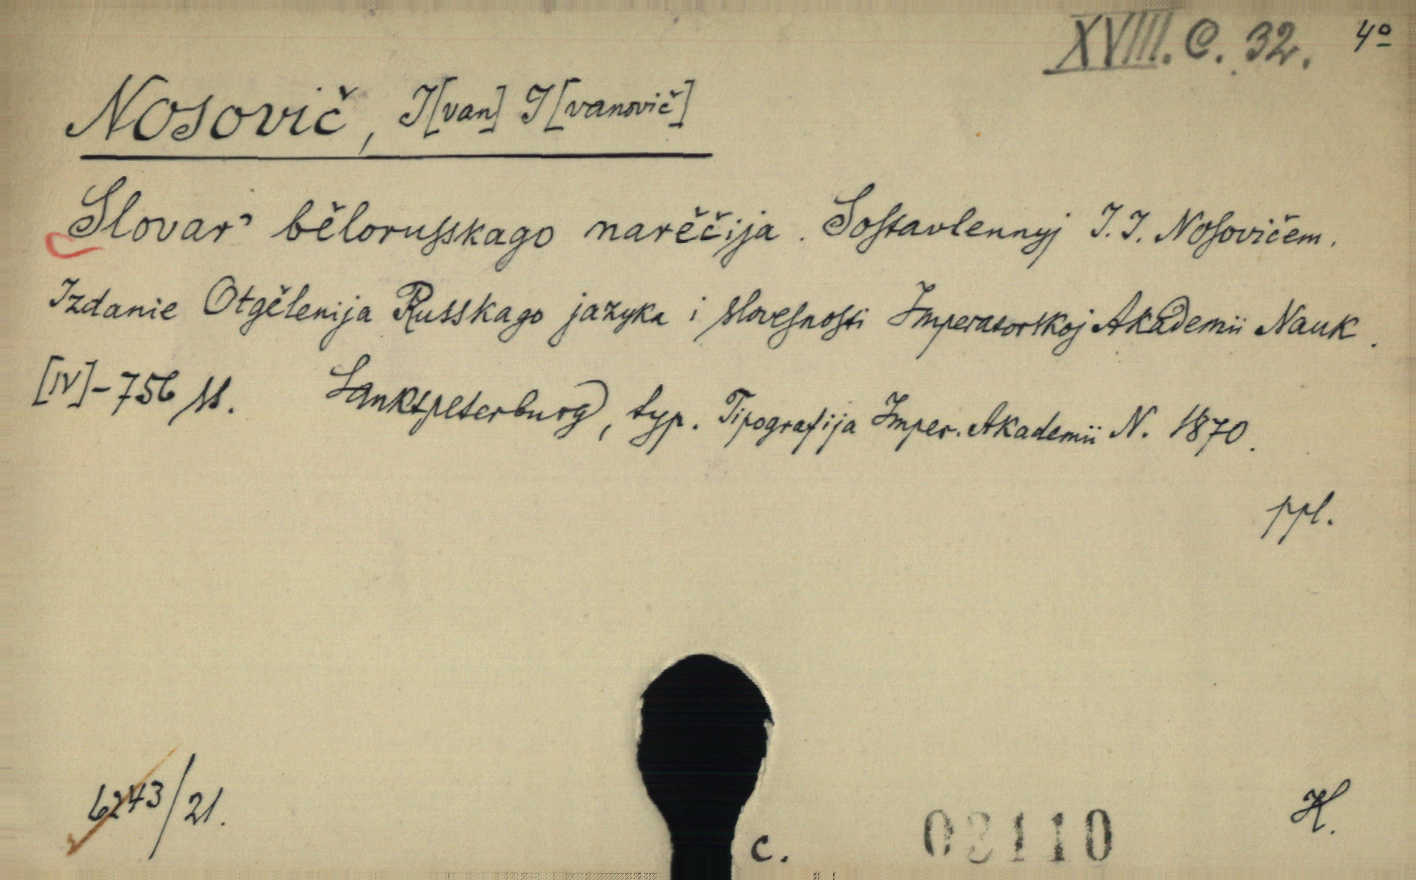 XVIII. C. 32. 4º
Nosovič, I[van] I[vanovič]
Slovarʾ bělorusskago narěčija. Sostavlennyj I. I. Nosovičem.
Izdanie Otgělenija Russkago jazyka i slovesnosti Imperatorskoj Akademii Nauk.
[IV]-756 ss. Sanktpeterburg, typ. Tipografija Imper. Akademii N. 1870.
ppl.
6243/21.
c.
02110
H.